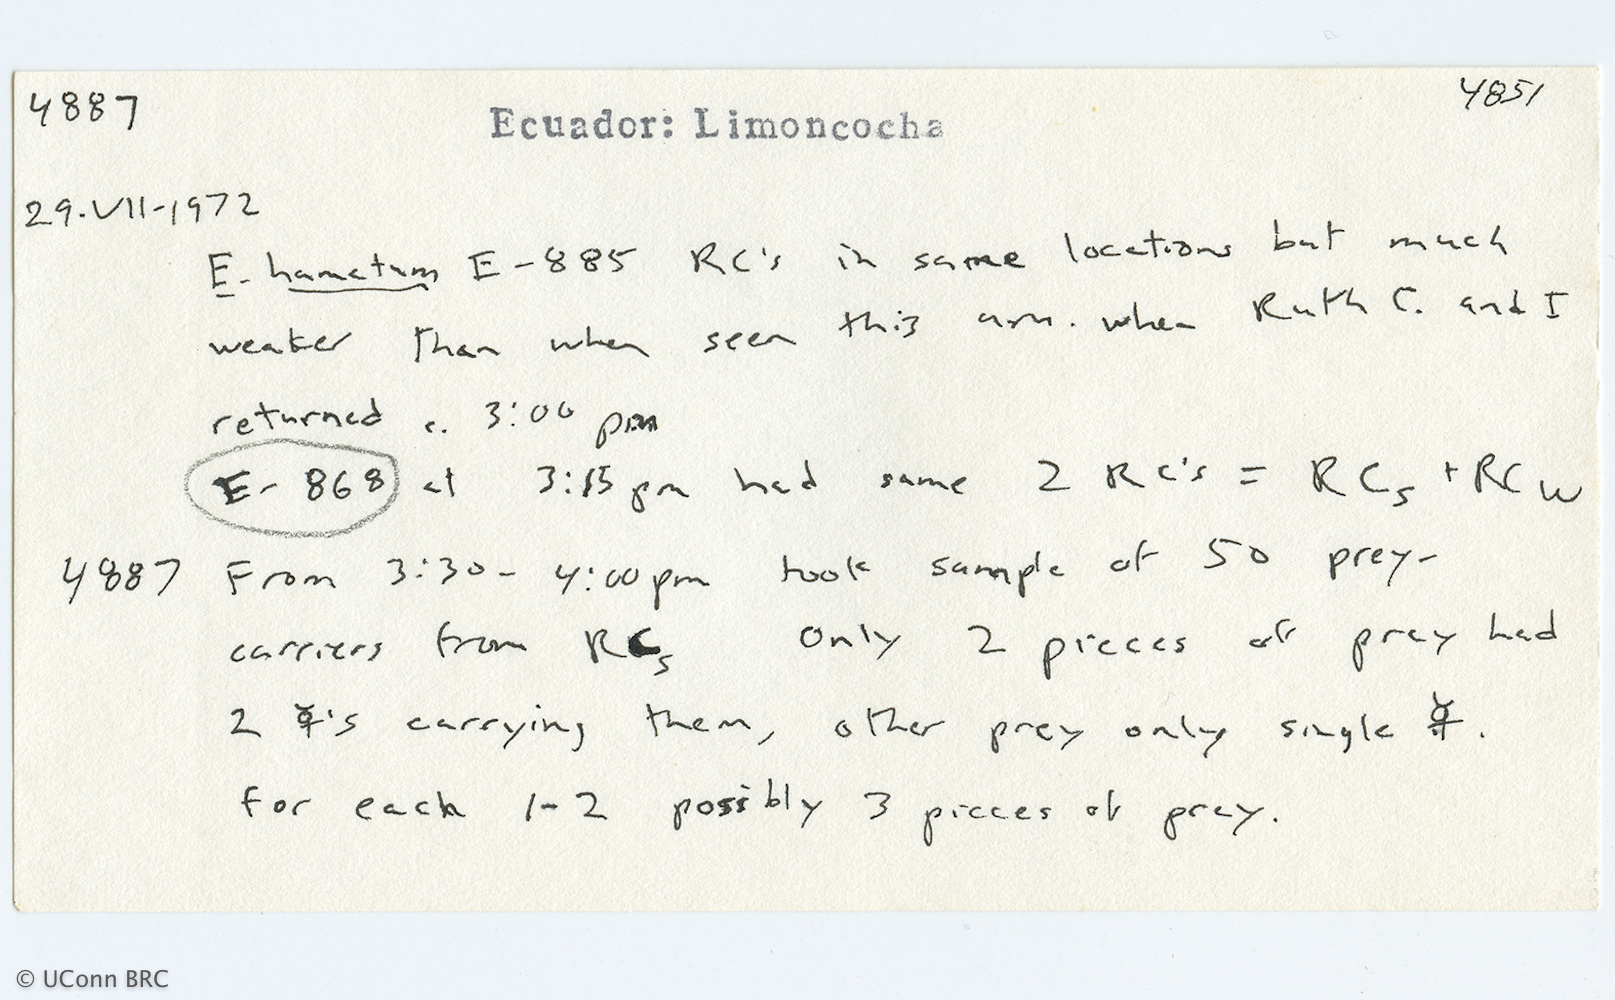 4887 Ecuador: Limoncocha 4851
29-VII-1972
E. hamatum E-885 RC's in same locations but much
weaker than when seen this a.m. when Ruth C. and I
returned c. 3:00 pm
E-868 at 3:15 pm had same 2 RC's = RCs + RCW
4887 From 3:30 - 4:00pm took sample of 50 prey-
carriers from RCs Only 2 pieces of prey had
2 ☿'s carrying them, other prey only single ☿.
For each 1-2 possibly 3 pieces of prey.
© UConn BRC